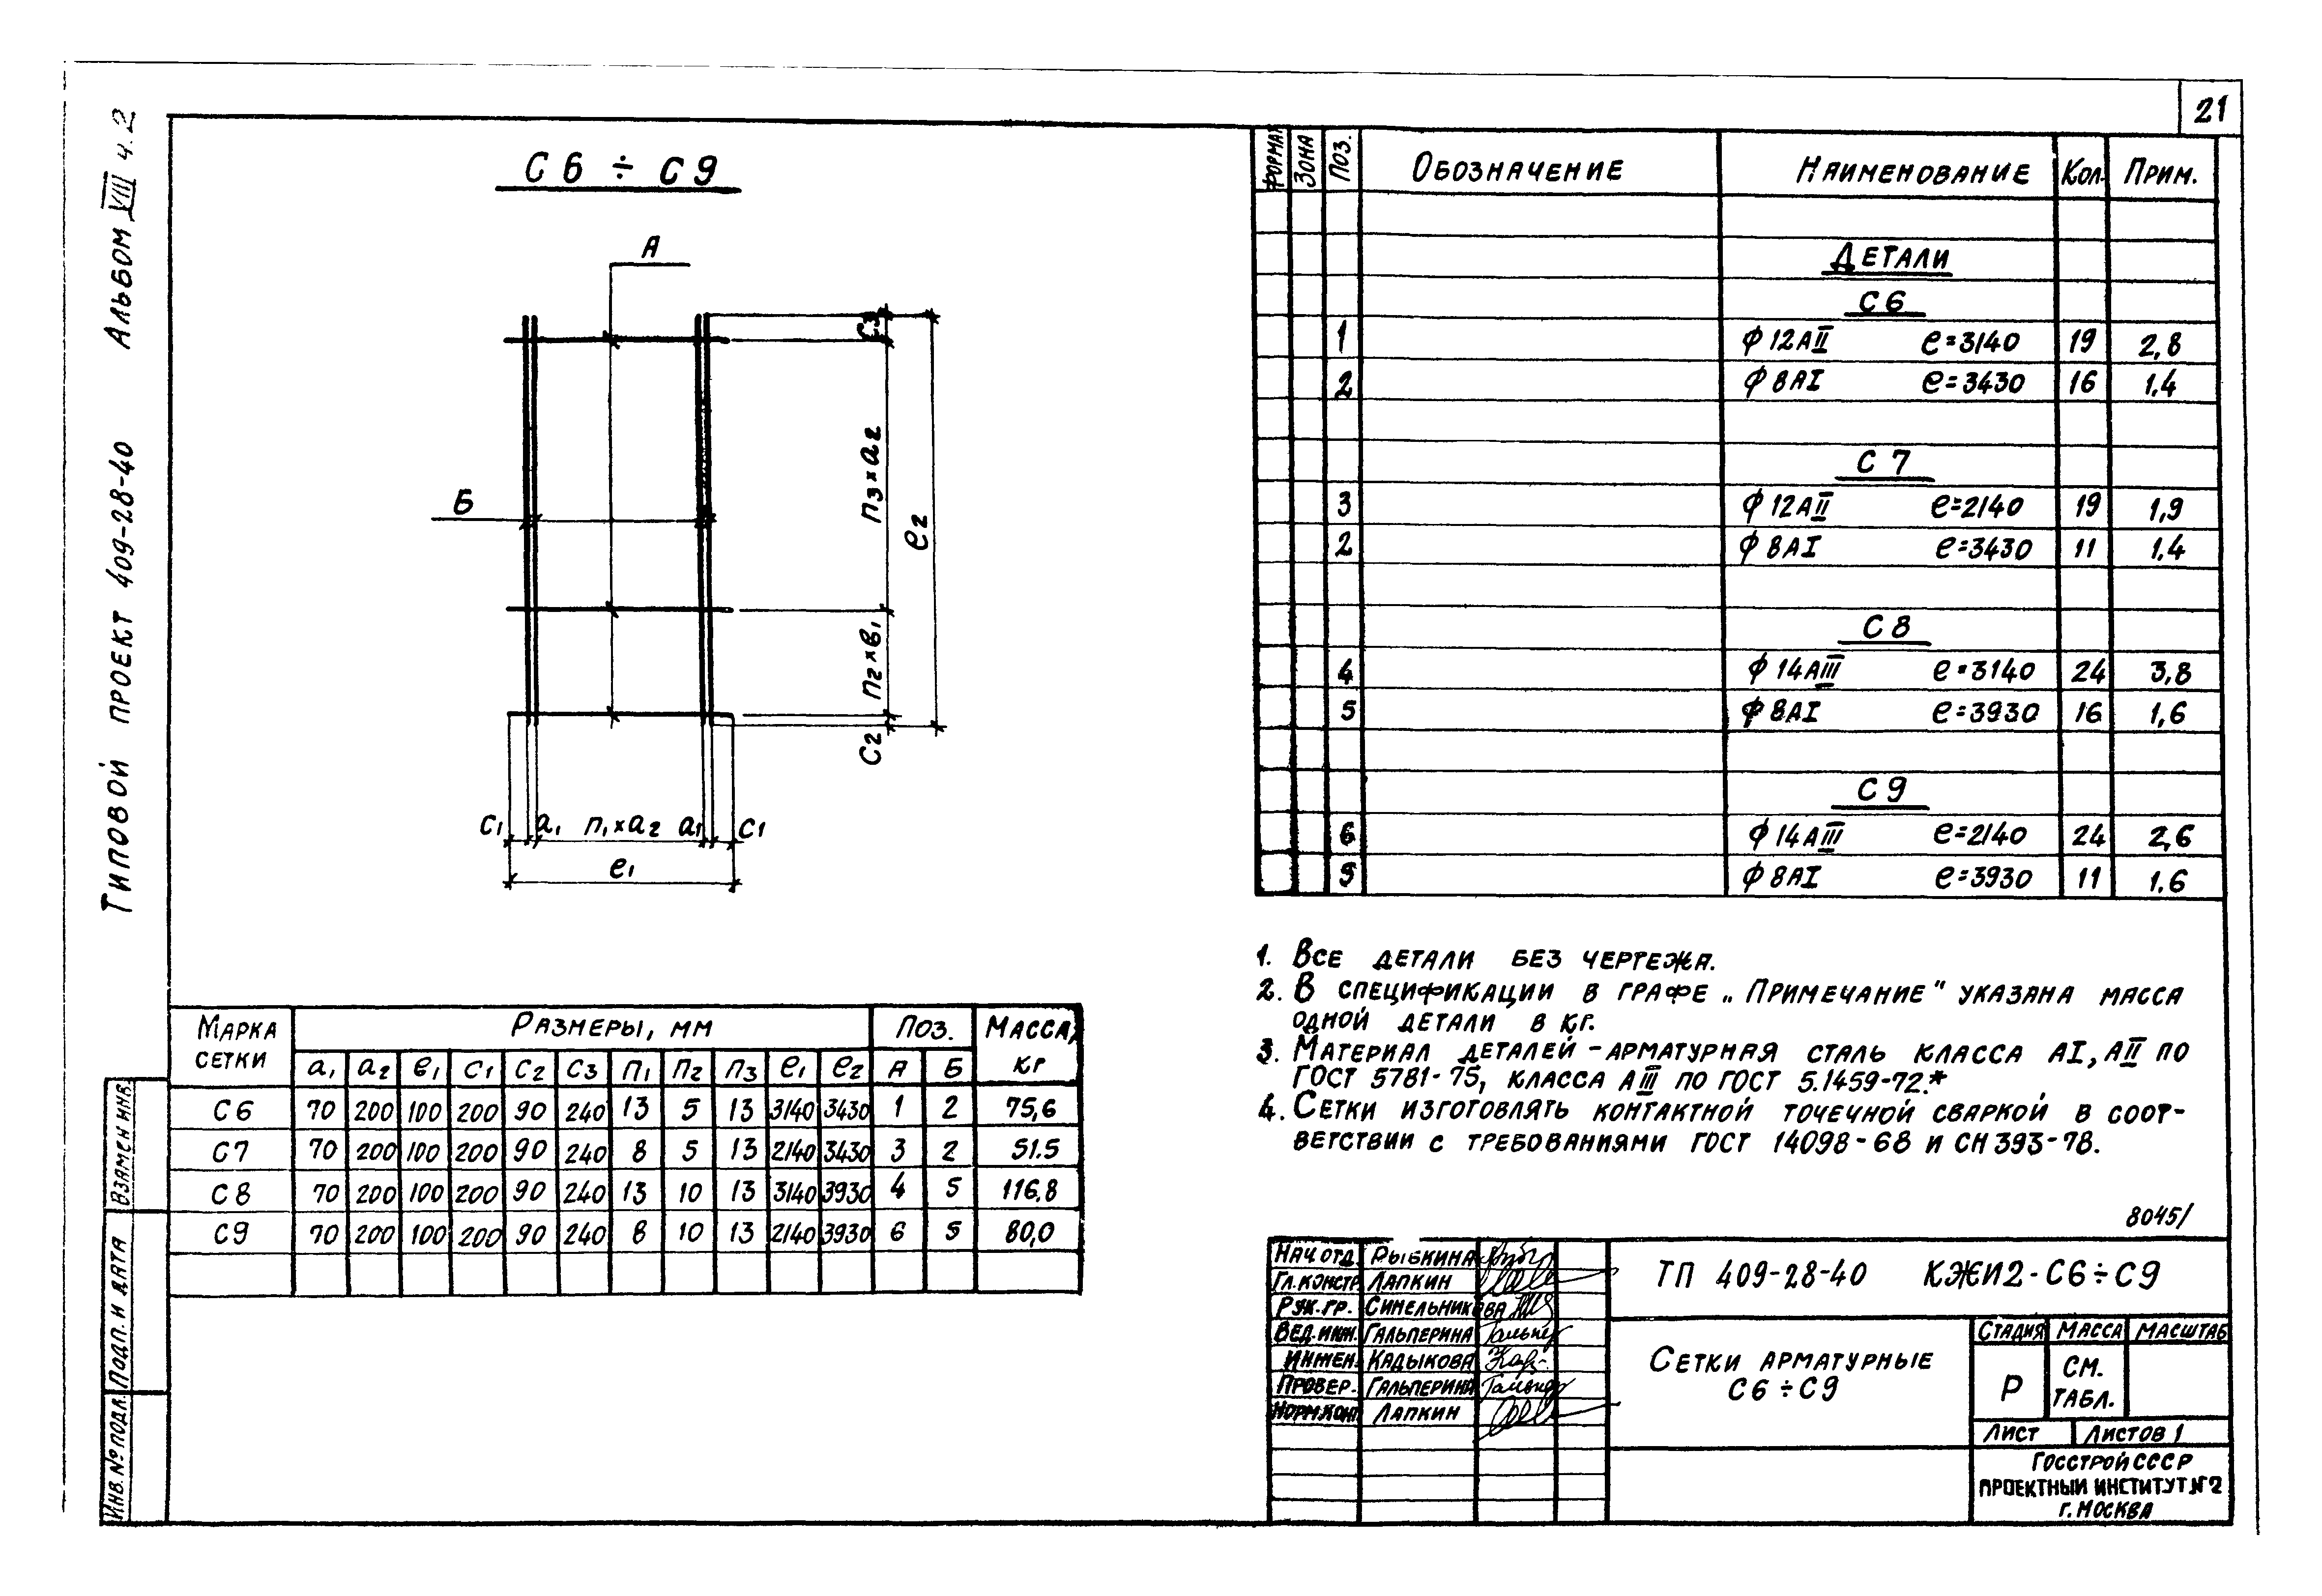 21
Типовой проект 409-28-40 Альбом VIII ч.2
С6 ÷ С9
А
Б
С3
п3×а2
п2×в1
С2
ℓ2
С1 а1 п1×а2 а1 С1
ℓ1
Формат Зона Поз. Обозначение Наименование Кол. Прим.
Детали
С6
1 ф12АII ℓ=3140 19 2,8
2 ф8АI ℓ=3430 16 1.4
С7
3 ф12АII ℓ=2140 19 1,9
2 ф8АI ℓ=3430 11 1.4
С8
4 ф14АIII ℓ=3140 24 3,8
5 ф8АI ℓ=3930 16 1,6
С9
6 ф14АIII ℓ=2140 24 2,6
5 ф8АI ℓ=3930 11 1.6
1. Все детали без чертежа.
2. В спецификации в графе „Примечание" указана масса
одной детали в кг.
3. Материал деталей - арматурная сталь класса АI, АII по
ГОСТ 5781-75, класса АIII по ГОСТ 5.1459-72.*
4. Сетки изготовлять контактной точечной сваркой в соот-
ветствии с требованиями ГОСТ 14098-68 и СН 393-78.
Марка сетки Размеры, мм Поз. Масса, кг
а1 а2 в1 С1 С2 С3 п1 п2 п3 ℓ1 ℓ2 А Б
С6 70 200 100 200 90 240 13 5 13 3140 3430 1 2 75,6
С7 70 200 100 200 90 240 8 5 13 2140 3430 3 2 51.5
С8 70 200 100 200 90 240 13 10 13 3140 3930 4 5 116.8
С9 70 200 100 200 90 240 8 10 13 2140 3930 6 5 80,0
Взамен инв.
Подп. и дата
Инв. № подл.
8045/
Нач отд. Рыбкина
Гл. констр Лапкин
Рук. гр. Синельникова
Вед. инж. Гальперина
Инжен. Кадыкова
Провер. Гальперина
Норм. кон Лапкин
ТП 409-28-40 КЖИ2-С6÷С9
Сетки арматурные
С6÷С9
Стадия Масса Масштаб
Р см. табл.
Лист Листов 1
Госстрой СССР
проектный институт №2
г. Москва